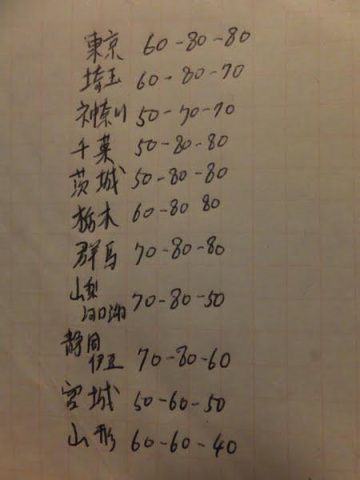 東京 60-80-80
埼玉 60-80-70
神奈川 50-70-70
千葉 50-80-80
茨城 50-80-80
栃木 60-80 80
群馬 70-80-80
山梨
河口湖 70-80-50
静岡
伊豆 70-80-60
宮城 50-60-50
山形 60-60-40